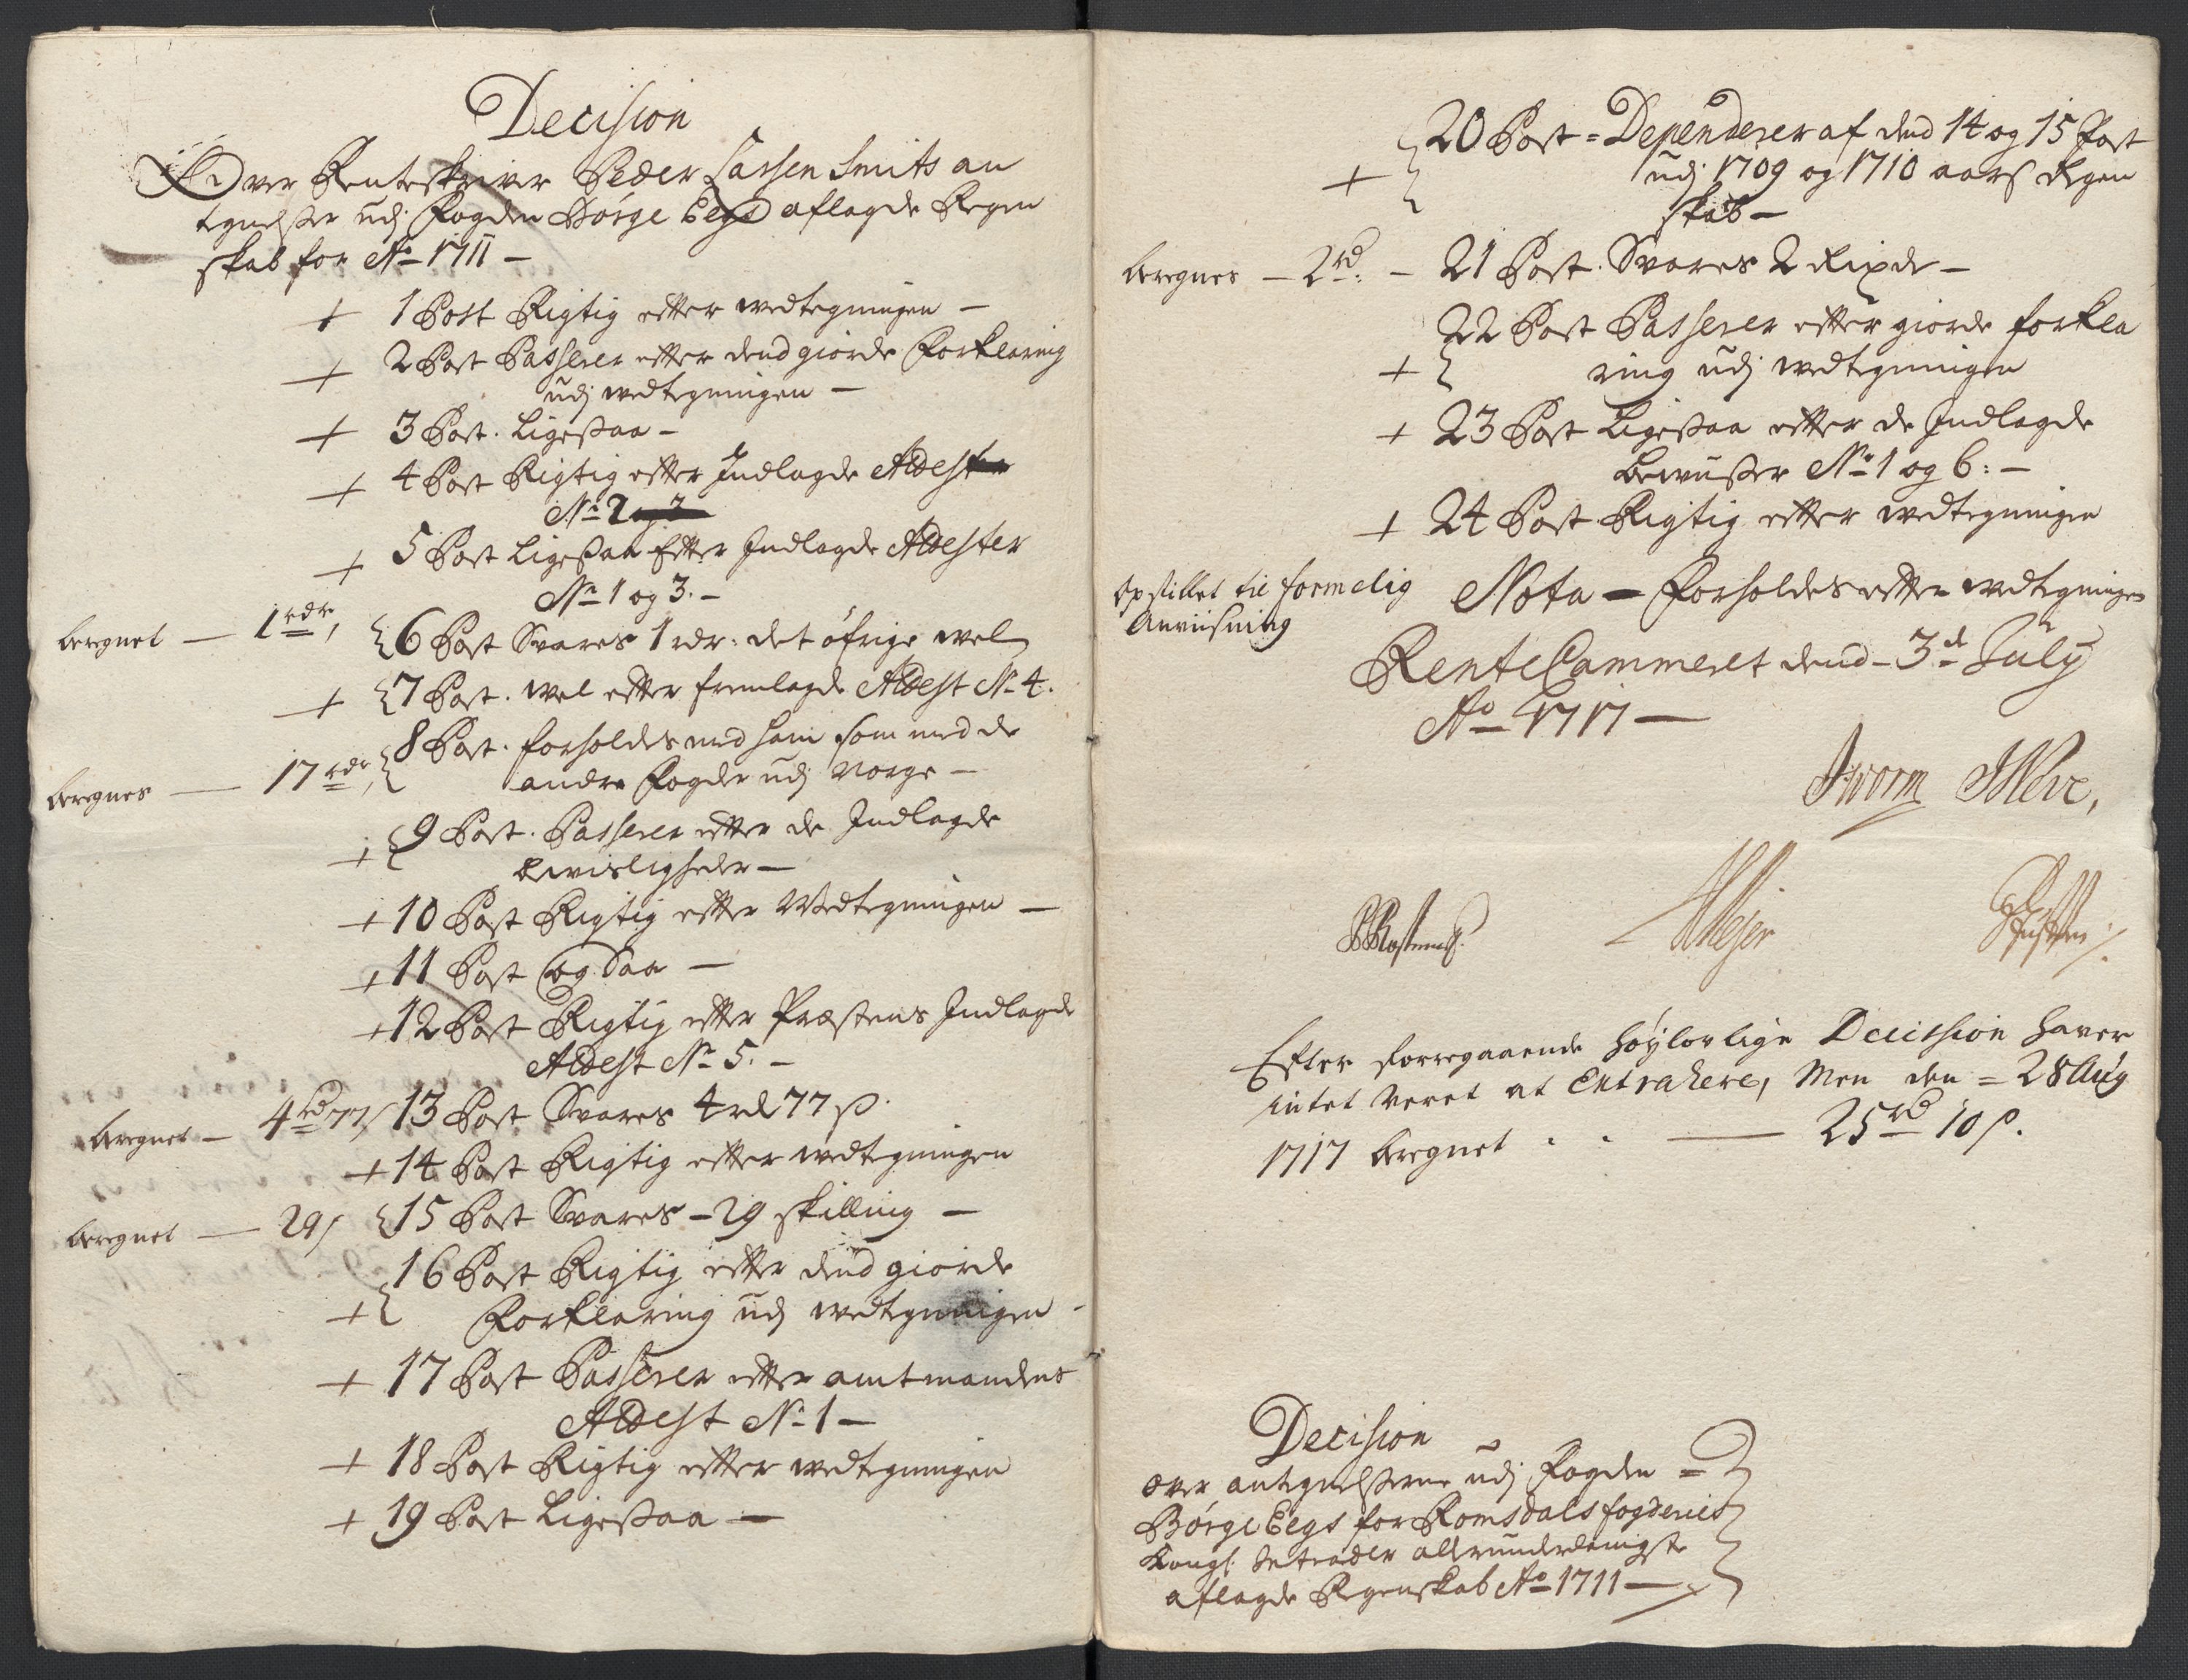 Decision
Over Renteskriver Peder Lassen Smits an
tegnelsser udj Fogden Børge Eegs aflagde Regen
skab for Ao 1711 –
+ 1 Post Rigtig efter wedtegningen –
+ 2 Post Passerer efter dend giorde Forklaring
udj wedtegningen –
+ 3 Post. Ligessaa –
+ 4 Post Rigtig efter Indlagde Attest
No 2
+ 5 Post Ligessaa Efter Indlagde Attester
No 1 og 3. –
beregnet — 1 rdr, 6 Post Svares 1 rdr: det øfrige wel
+ 7 Post. wel efter fremlagde Attest No 4.
8 Post. forholdes med ham som med de
beregnes — 17 rdr, andre Fogder udj Norge –
+ 9 Post. Passerer efter de Indlagde
bevisligheder –
+ 10 Post Rigtig efter Wedtegningen –
+ 11 Post og Saa –
+ 12 Post Rigtig efter Præstens Indlagde
Attest No 5. –
beregnet – 4 rd 77 s 13 Post Svares 4 rd 77 s.
+ 14 Post Rigtig efter wedtegningen
beregnet — 29 s 15 Post Svares – 29 skilling –
16 Post Rigtig efter dend giorde
+ Forklaring udj wedtegningen –
+ 17 Post Passerer efter amtmandens
Attest No 1 –
+ 18 Post Rigtig efter wedtegningen
+ 19 Post Ligessaa –
20 Post = Dependerer af dend 14 og 15 Post
+ udj 1709 og 1710 aars Regen
skab –
beregnes – 2 rd: – 21 Post. Svares 2 Rixdr –
22 Post Passerer efter giorde forkla
+ ring udj wedtegningen
+ 23 Post Ligessaa efter de Indlagde
bewiisser No 1 og 6: –
+ 24 Post Rigtig efter wedtegningen
Opstillet til formelig Nota – Forholdes efter wedtegningen
Anviisning
RenteCammeret dend – 3d July
Ao 1717 –
Jworm
Efter forregaaende høylovlige Decission haver
intet veret at Extrahere, Men den = 28 Aug
1717 beregnet . . — 25 rd 10 s.
Decision
over antegnelsserne udj Fogden =
Børge Eegs for Romsdals fogderies
Kongl: Intrader allerunderdanigste
aflagde Regenskab Ao 1711 –